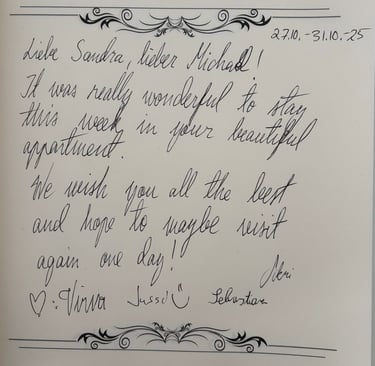 27.10.-31.10.-25
Liebe Sandra, lieber Michael!
It was really wonderful to stay
this week in your beautiful
appartment.
We wish you all the best
and hope to maybe visit
again one day!
♡: Virva Jussi Sebastian